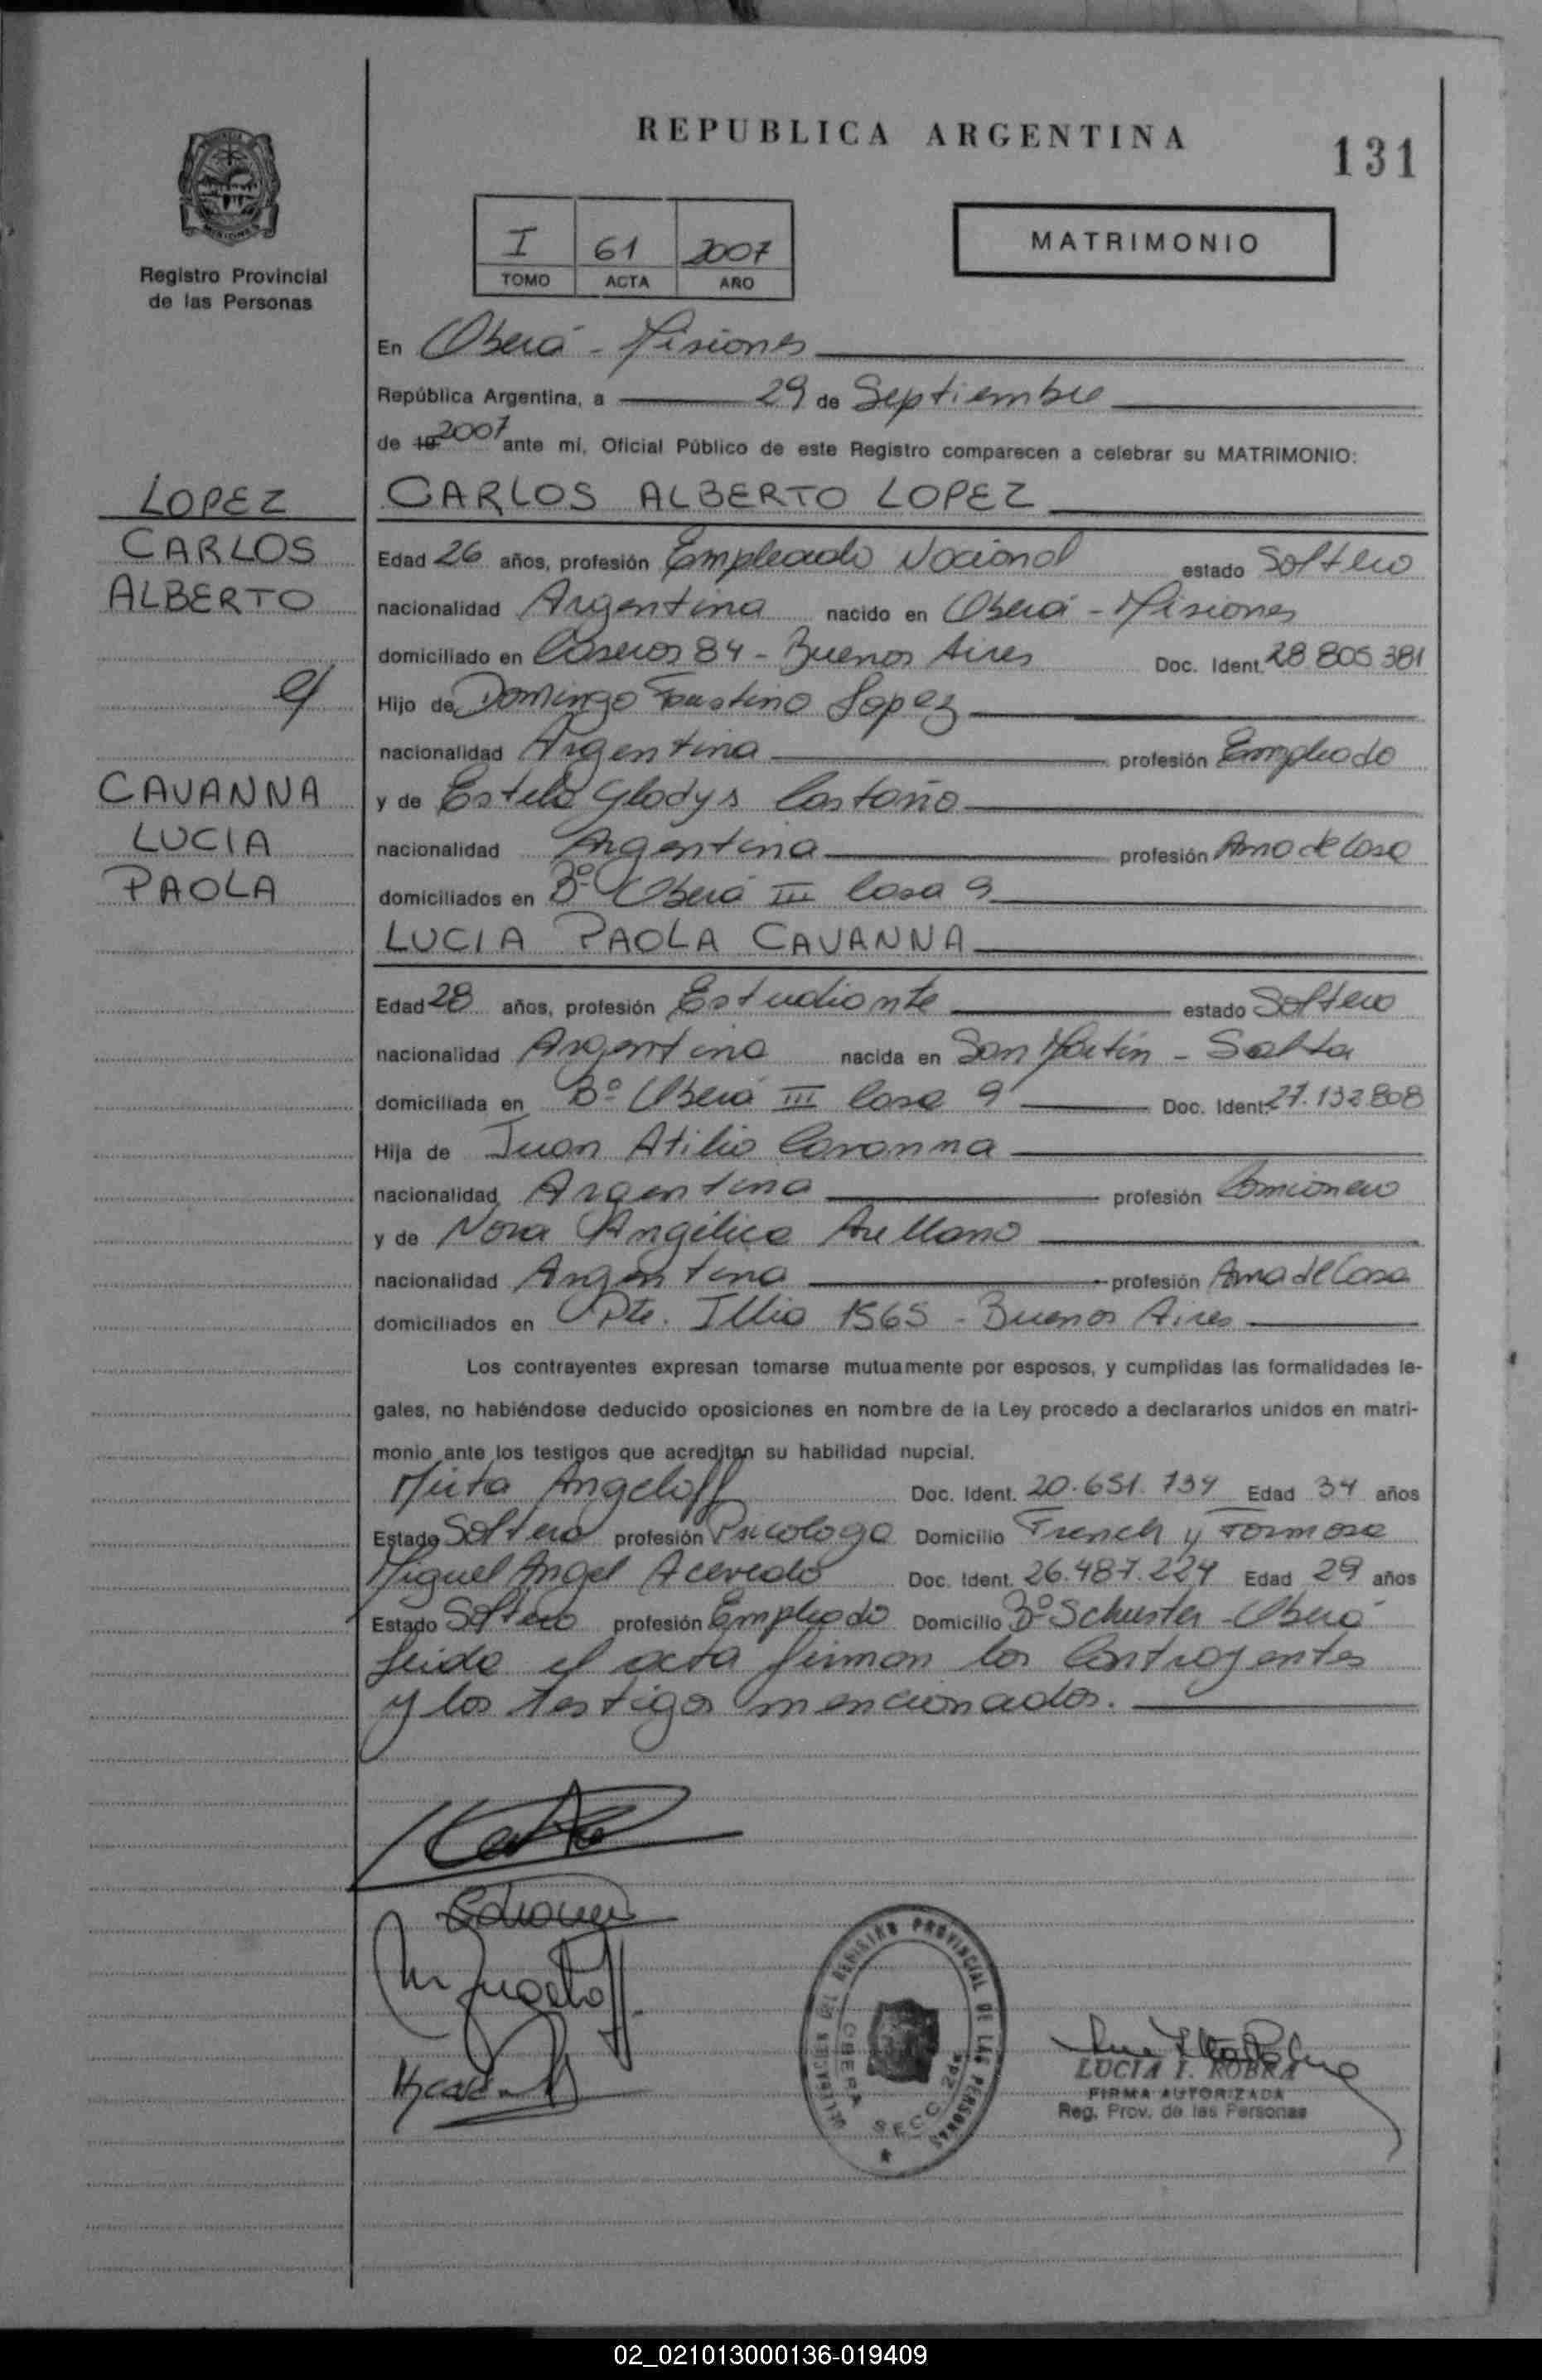 REPUBLICA ARGENTINA
131
Registro Provincial
de las Personas
I 61 2007
TOMO ACTA AÑO
MATRIMONIO
En Oberá - Misiones
República Argentina, a 29 de Septiembre
de 19 2007 ante mi, Oficial Público de este Registro comparecen a celebrar su MATRIMONIO:
LOPEZ
CARLOS
ALBERTO
c/
CAVANNA
LUCIA
PAOLA
CARLOS ALBERTO LOPEZ
Edad 26 años, profesión Empleado Nacional estado Soltero
nacionalidad Argentina nacido en Oberá - Misiones
domiciliado en Caseros 84 - Buenos Aires Doc. Ident. 28 805 381
Hijo de Domingo Faustino Lopez
nacionalidad Argentina profesión Empleado
y de Estela Gladys Castaño
nacionalidad Argentina profesión Ama de Casa
domiciliados en Bº Oberá III Casa 9
LUCIA PAOLA CAVANNA
Edad 28 años, profesión Estudiante estado Soltera
nacionalidad Argentina nacida en San Martín - Salta
domiciliada en Bº Oberá III Casa 9 Doc. Ident. 27.132 808
Hija de Juan Atilio Cavanna
nacionalidad Argentina profesión Camionero
y de Nora Angélica Arellano
nacionalidad Argentina profesión Ama de Casa
domiciliados en Pte. Illia 1565 - Buenos Aires
Los contrayentes expresan tomarse mutuamente por esposos, y cumplidas las formalidades le-
gales, no habiéndose deducido oposiciones en nombre de la Ley procedo a declararlos unidos en matri-
monio ante los testigos que acreditan su habilidad nupcial.
Mirta Angeloff Doc. Ident. 20.651.734 Edad 34 años
Estado Soltera profesión Psicologa Domicilio French y Formosa
Miguel Angel Acevedo Doc. Ident. 26.487.224 Edad 29 años
Estado Soltero profesión Empleado Domicilio Bº Schuster - Oberá
Leida el acta firman los Contrayentes
y los testigos mencionados.
DELEGACION DEL REGISTRO PROVINCIAL DE LAS PERSONAS
OBERA SECC. 2da
LUCIA I. ROBRA
FIRMA AUTORIZADA
Reg. Prov. de las Personas
02_021013000136-019409